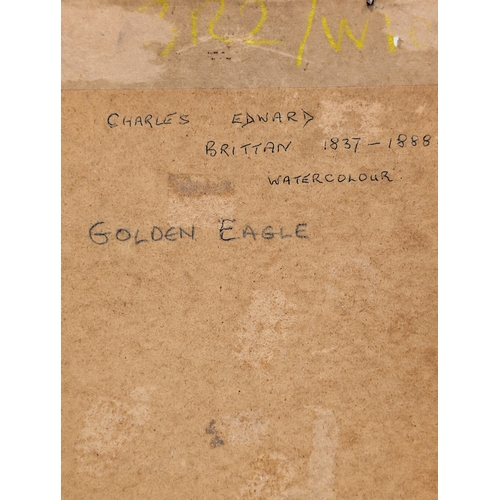 3122/W
CHARLES EDWARD
BRITTAN 1837-1888
WATERCOLOUR
GOLDEN EAGLE